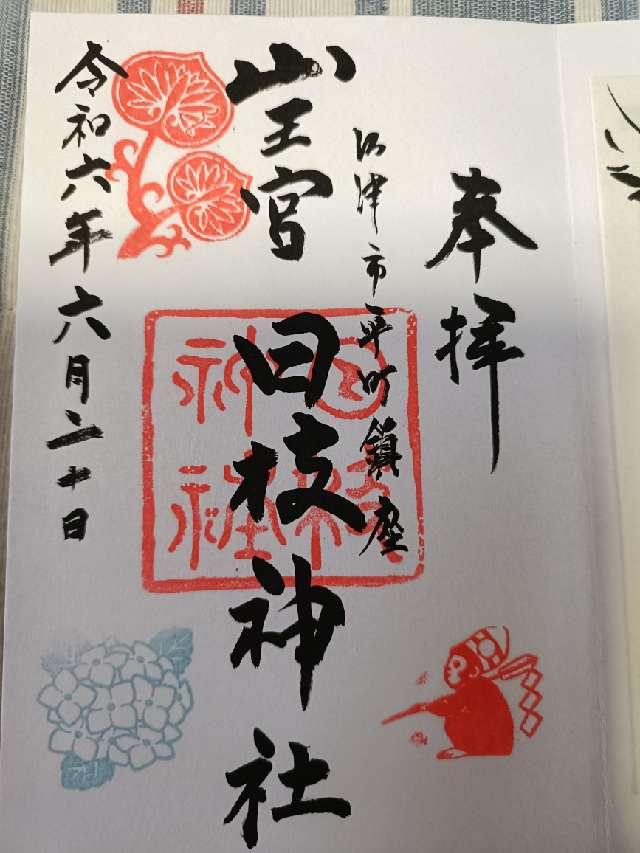 奉拝
沼津市平町鎮座
山王宮 日枝神社
日枝
神社
令和六年六月二十日